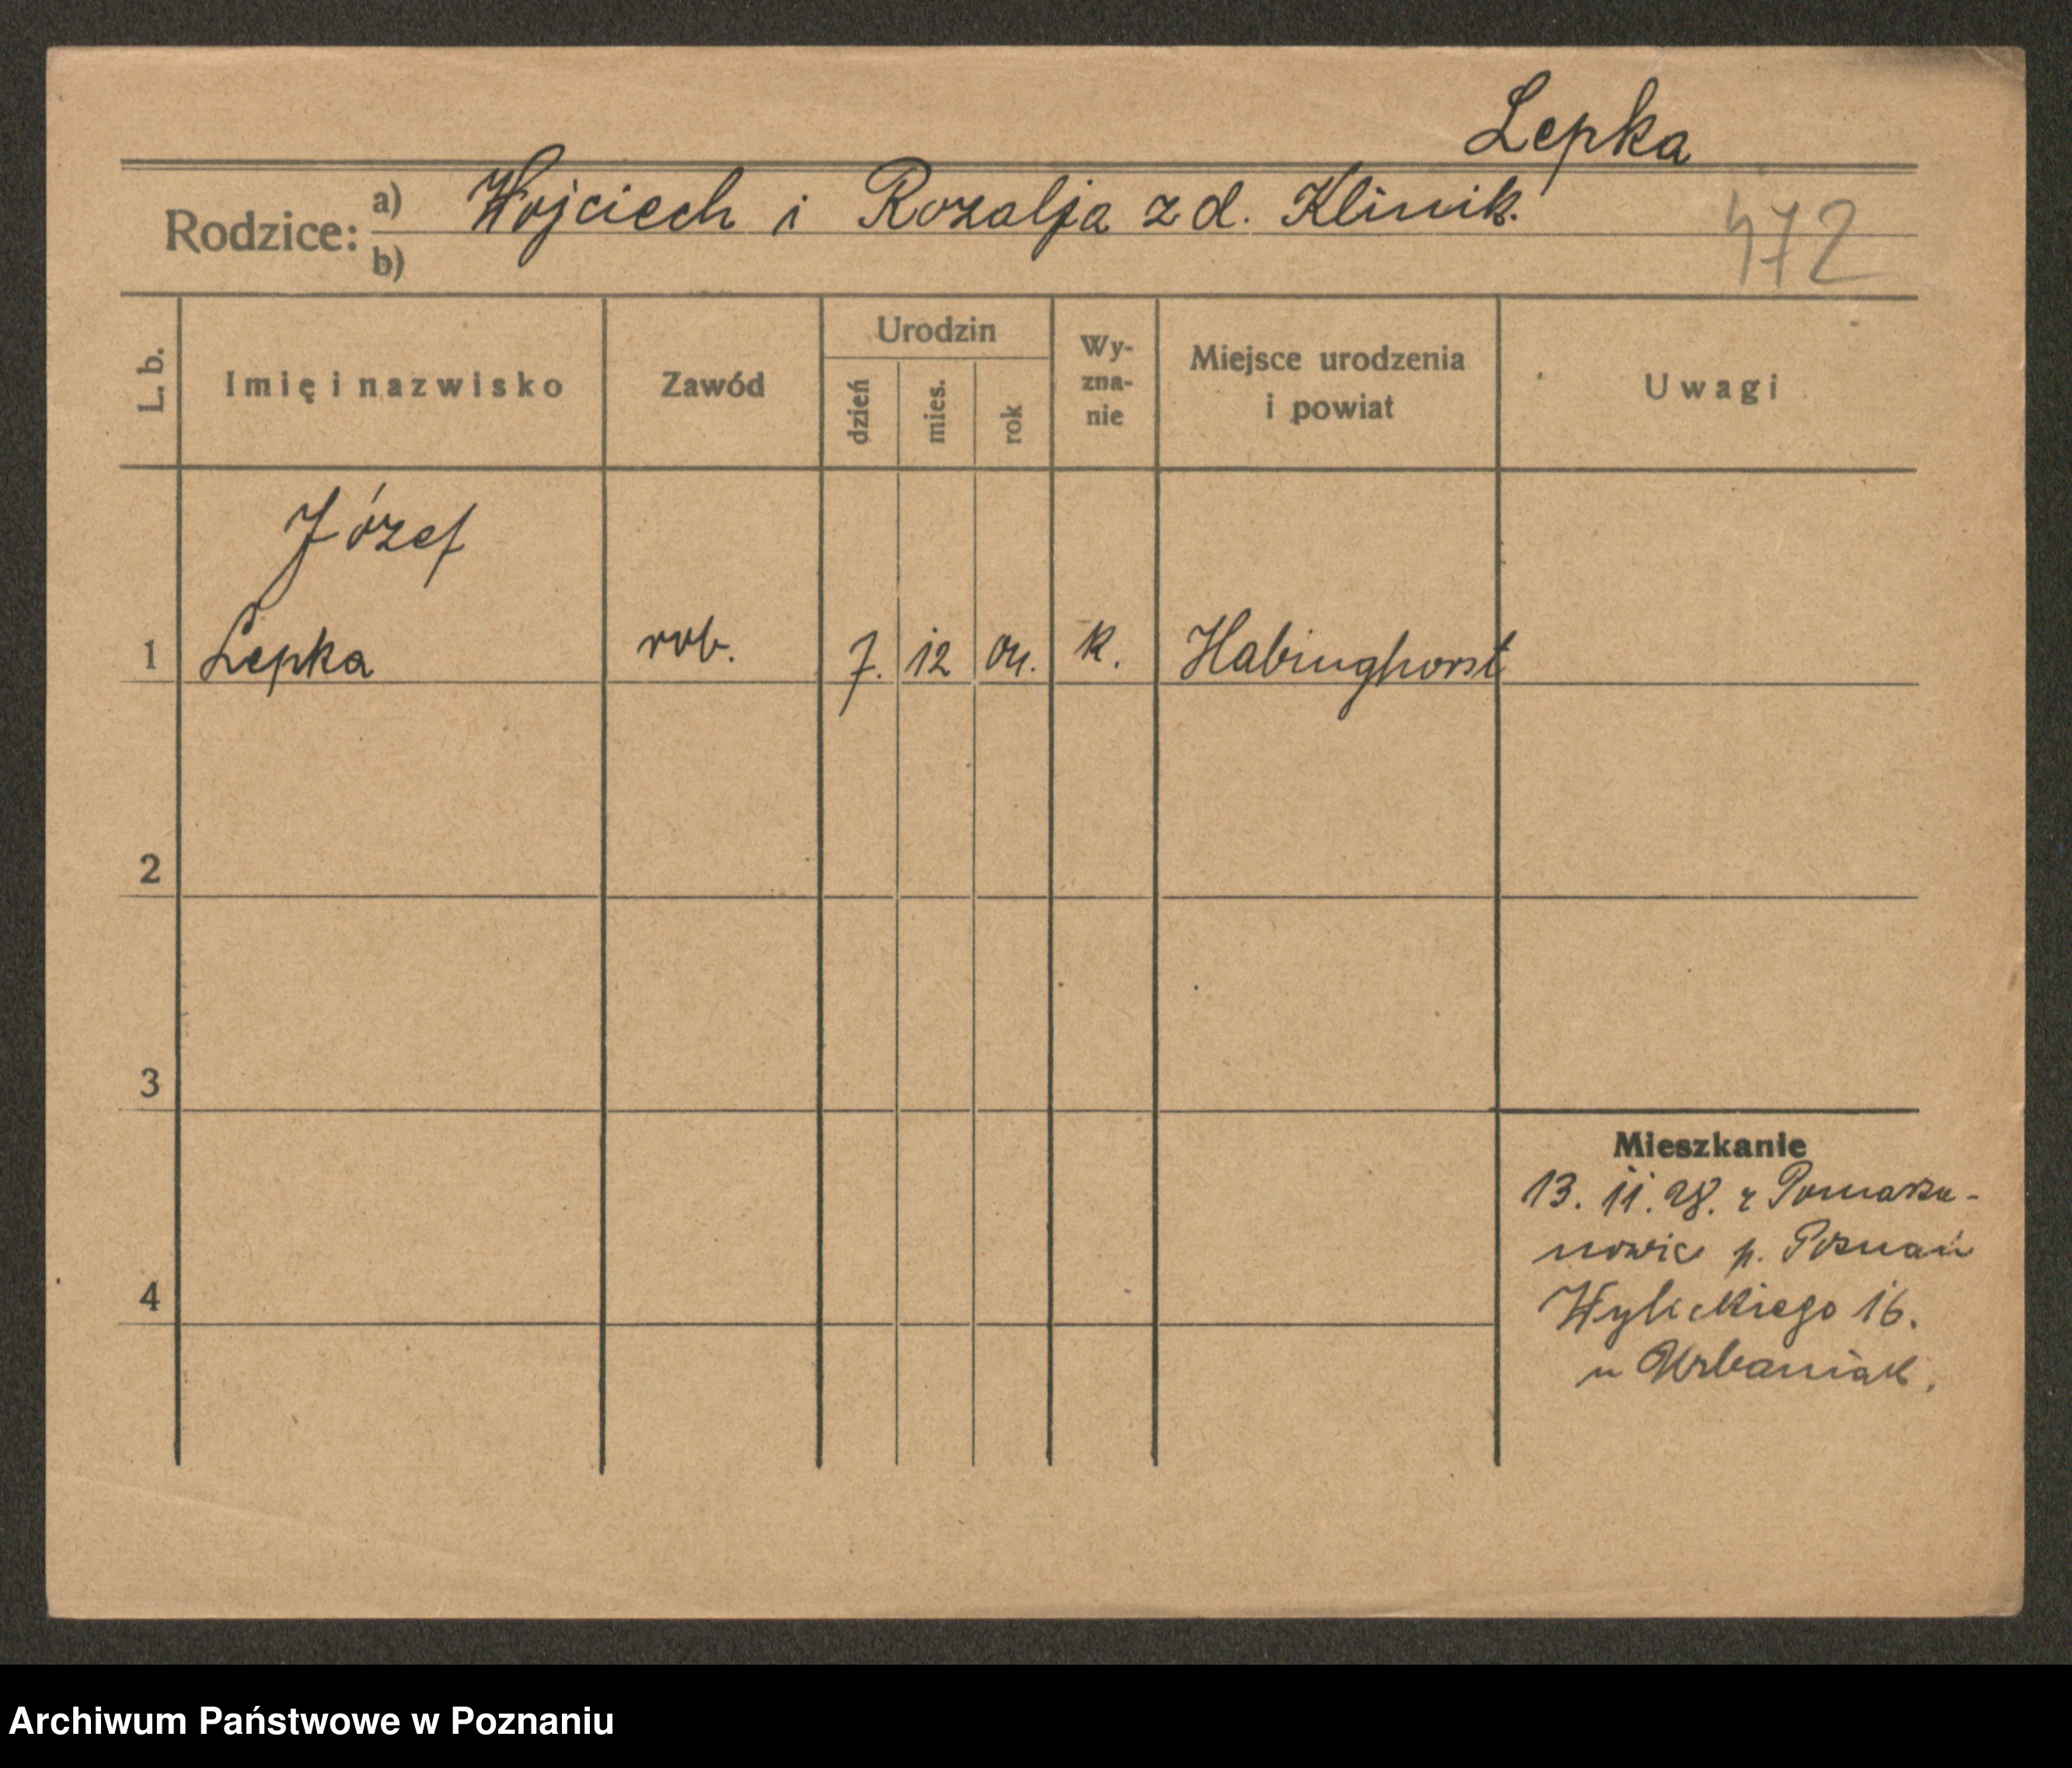 Lepka
Rodzice: a) Wojciech i Rozalja z d. Klinik.
b)
472
L. b. Imię i nazwisko Zawód Urodzin dzień mies. rok Wy-zna-nie Miejsce urodzenia i powiat Uwagi
Józef
1 Lepka rob. 7. 12 04. k. Habinghorst
2
3
4
Mieszkanie
13. 11. 28. z Pomarza-
nowic p. Poznań
Wybickiego 16.
u Urbaniak.
Archiwum Państwowe w Poznaniu